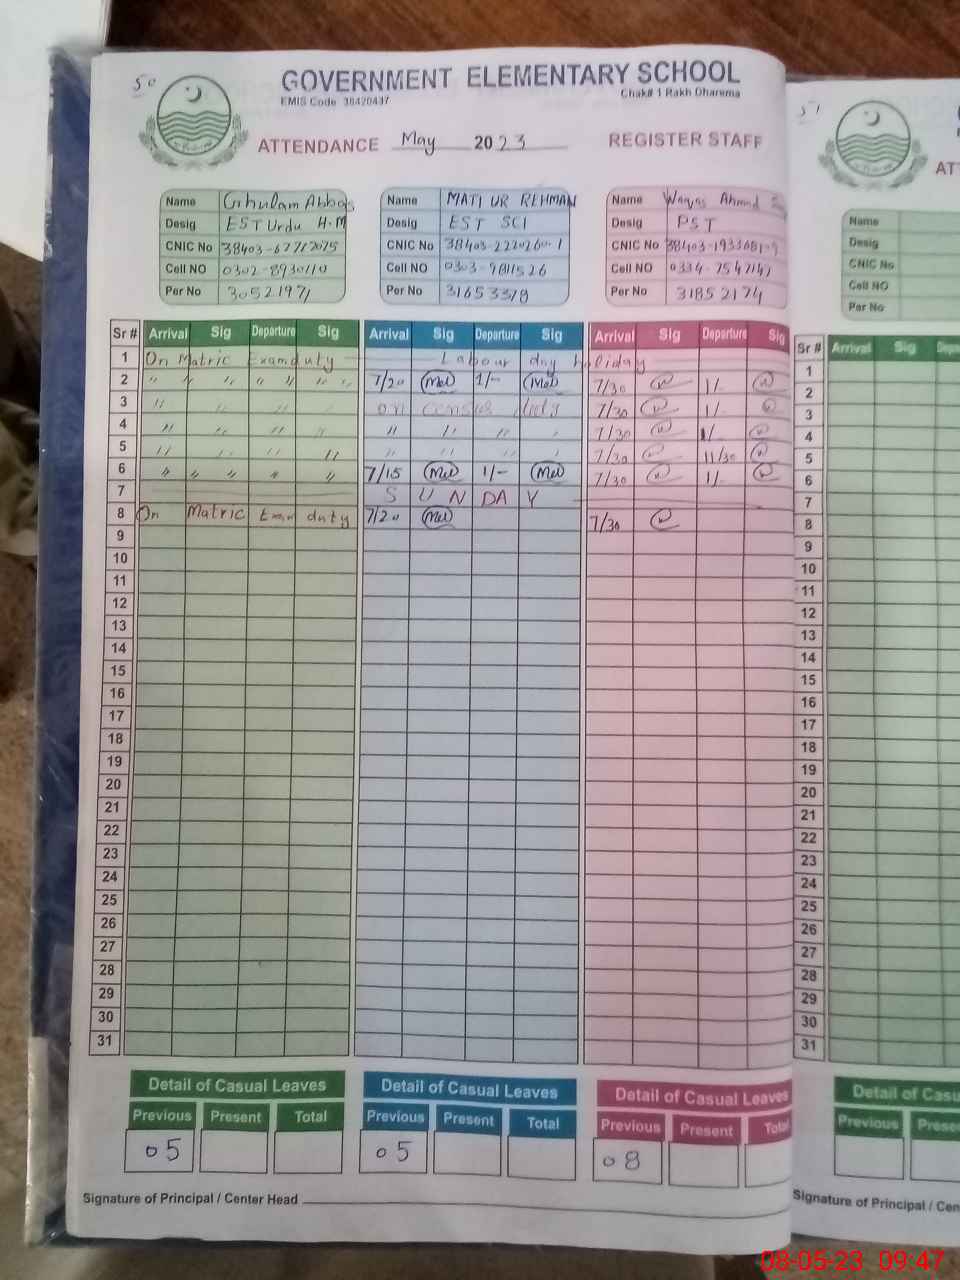 50
GOVERNMENT ELEMENTARY SCHOOL
EMIS Code 38420437
Chak# 1 Rakh Dharema
ATTENDANCE May 2023 REGISTER STAFF
Name Ghulam Abbas
Desig EST Urdu H.M
CNIC No
Cell NO
Per No 30521971
Name MATI UR REHMAN
Desig EST SCI
CNIC No
Cell NO 0303-9811526
Per No 31653378
Name Waqas Ahmad
Desig PST
CNIC No
Cell NO 0334-7547147
Per No 31852174
Sr # Arrival Sig Departure Sig Arrival Sig Departure Sig Arrival Sig Departure Sig
1 On Matric Exam duty Labour day holiday
2 " " " " " " " 7/20 1/- 7/30 1/-
3 " " " " on census duty 7/30 1/-
4 " " " " " " " " 7/30 1/-
5 " " " " " " " " 7/30 11/30
6 " " " " " 7/15 1/- 7/30 1/-
7 SUNDAY
8 On Matric Exam duty 7/20 7/30
9
10
11
12
13
14
15
16
17
18
19
20
21
22
23
24
25
26
27
28
29
30
31
Detail of Casual Leaves Detail of Casual Leaves Detail of Casual Leaves
Previous Present Total Previous Present Total Previous Present Total
05 05 08
Signature of Principal / Center Head
51
Name
Desig
CNIC No
Cell NO
Per No
Sr # Arrival Sig
1
2
3
4
5
6
7
8
9
10
11
12
13
14
15
16
17
18
19
20
21
22
23
24
25
26
27
28
29
30
31
Detail of
Previous
Signature of Principal /
08-05-23 09:47